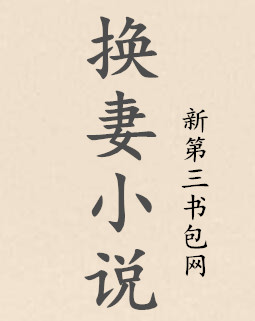 换妻小说
新第三书包网